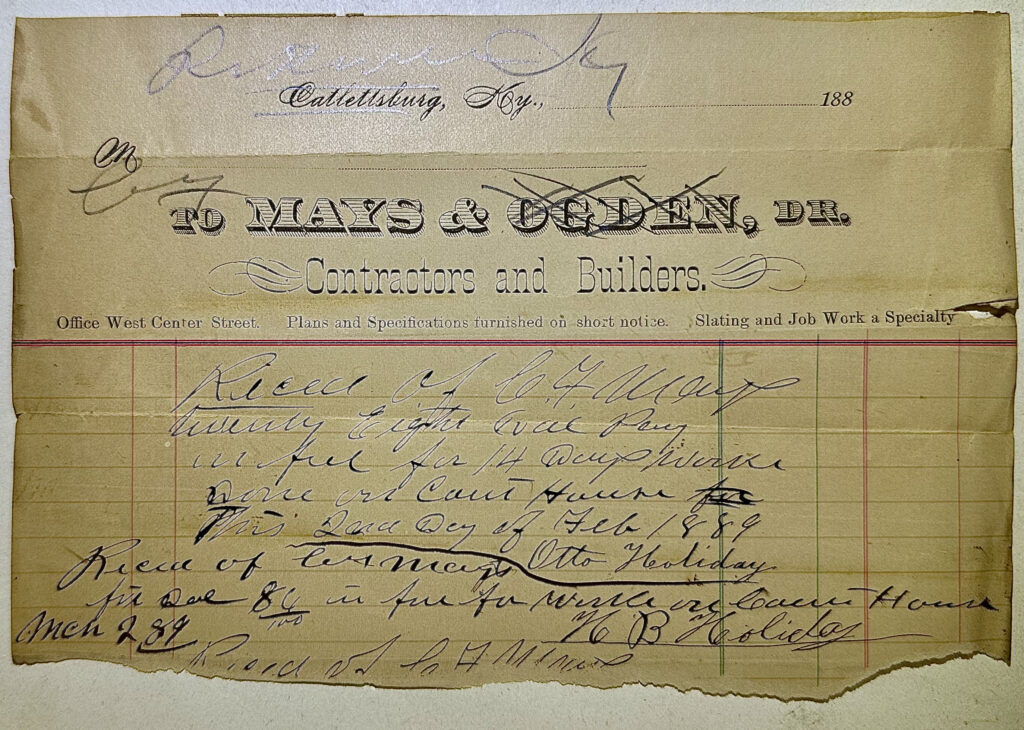 Ky
Catlettsburg, Ky., 188
M
TO MAYS & OGDEN, DR.
Contractors and Builders.
Office West Center Street. Plans and Specifications furnished on short notice. Slating and Job Work a Specialty
Recd of C F Mays
twenty Eight Pay
in ful for 14 Days Worke
Done on Cout House for
this 2nd Day of Feb 1889
Otto Holiday
Recd of C F Mays
in ful for Worke on Court House
Mch 2 89 H B Holiday
Recd of C F Mays